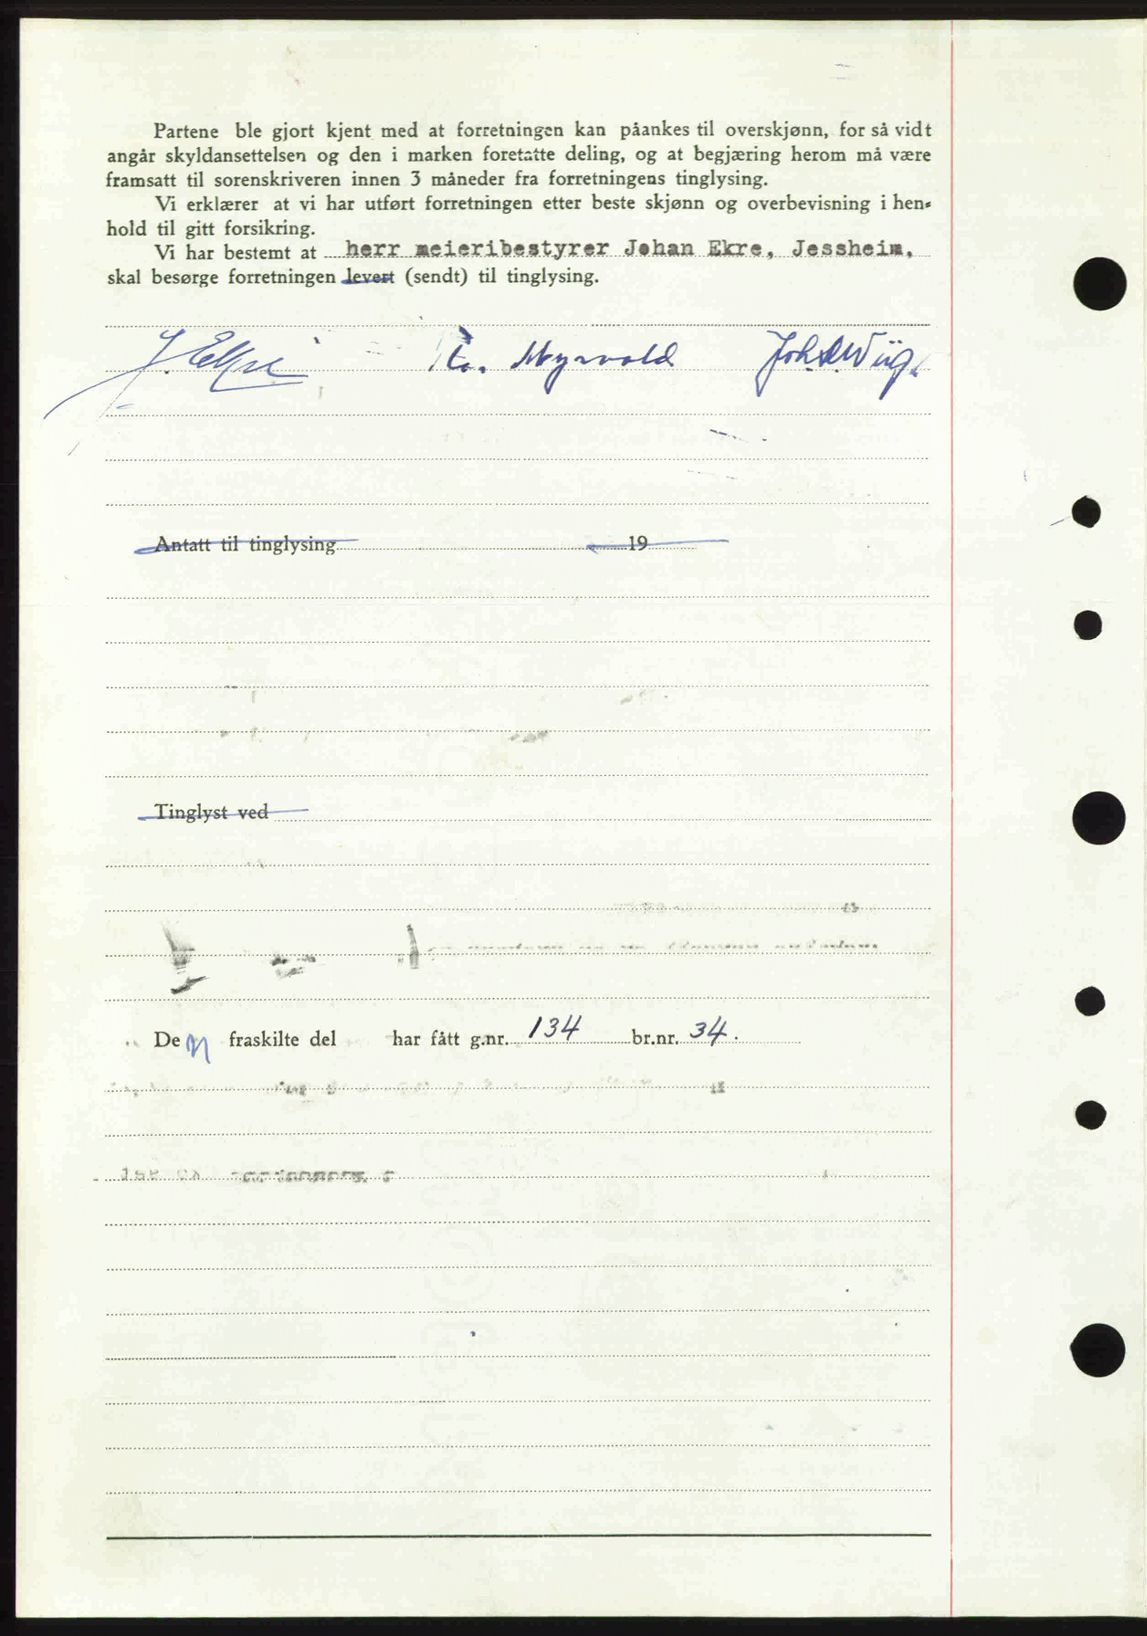 Partene ble gjort kjent med at forretningen kan påankes til overskjønn, for så vidt
angår skyldansettelsen og den i marken foretatte deling, og at begjæring herom må være
framsatt til sorenskriveren innen 3 måneder fra forretningens tinglysing.
Vi erklærer at vi har utført forretningen etter beste skjønn og overbevisning i hen-
hold til gitt forsikring.
Vi har bestemt at herr meieribestyrer Johan Ekre, Jessheim,
skal besørge forretningen levert (sendt) til tinglysing.
J. Ekre Kr. Myrvold Joh. Wiig.
Antatt til tinglysing 19
Tinglyst ved
Den fraskilte del har fått g.nr. 134 br.nr. 34.